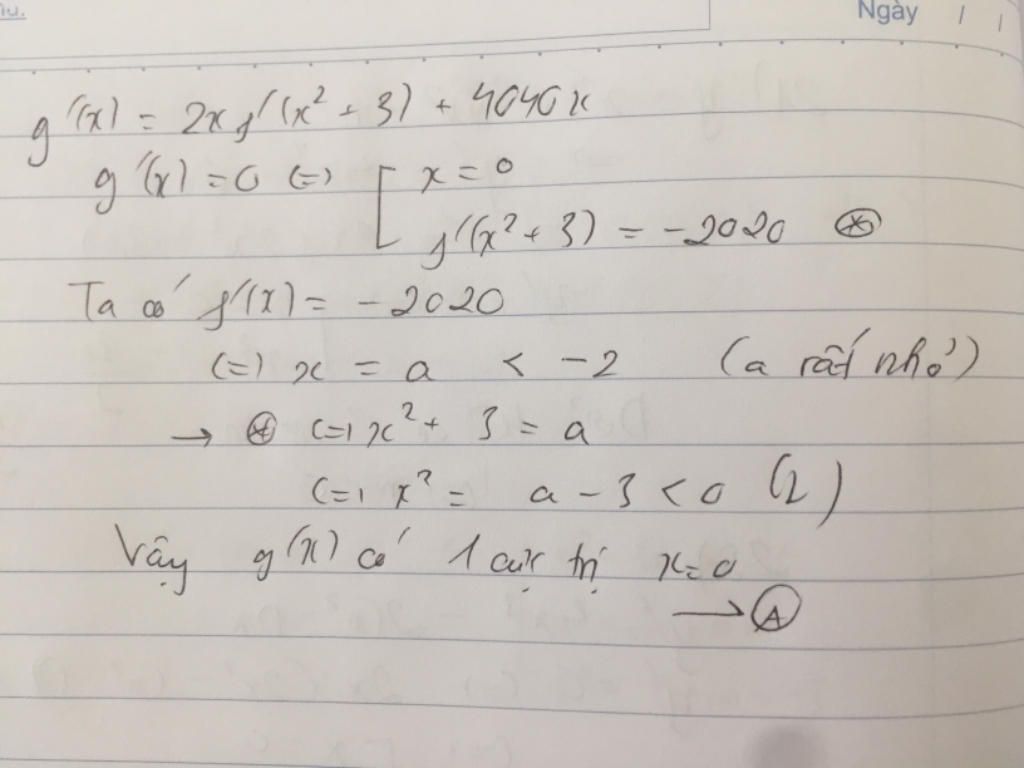 Ngày / /
g'(x) = 2x f'(x² + 3) + 4040x
g'(x) = 0 (=) [ x = 0
f'(x² + 3) = -2020 (*)
Ta có f'(x) = -2020
(=) x = a < -2 (a rất nhỏ)
→ (*) (=) x² + 3 = a
(=) x² = a - 3 < 0 (L)
Vậy g(x) có 1 cực trị x = 0
→ (A)